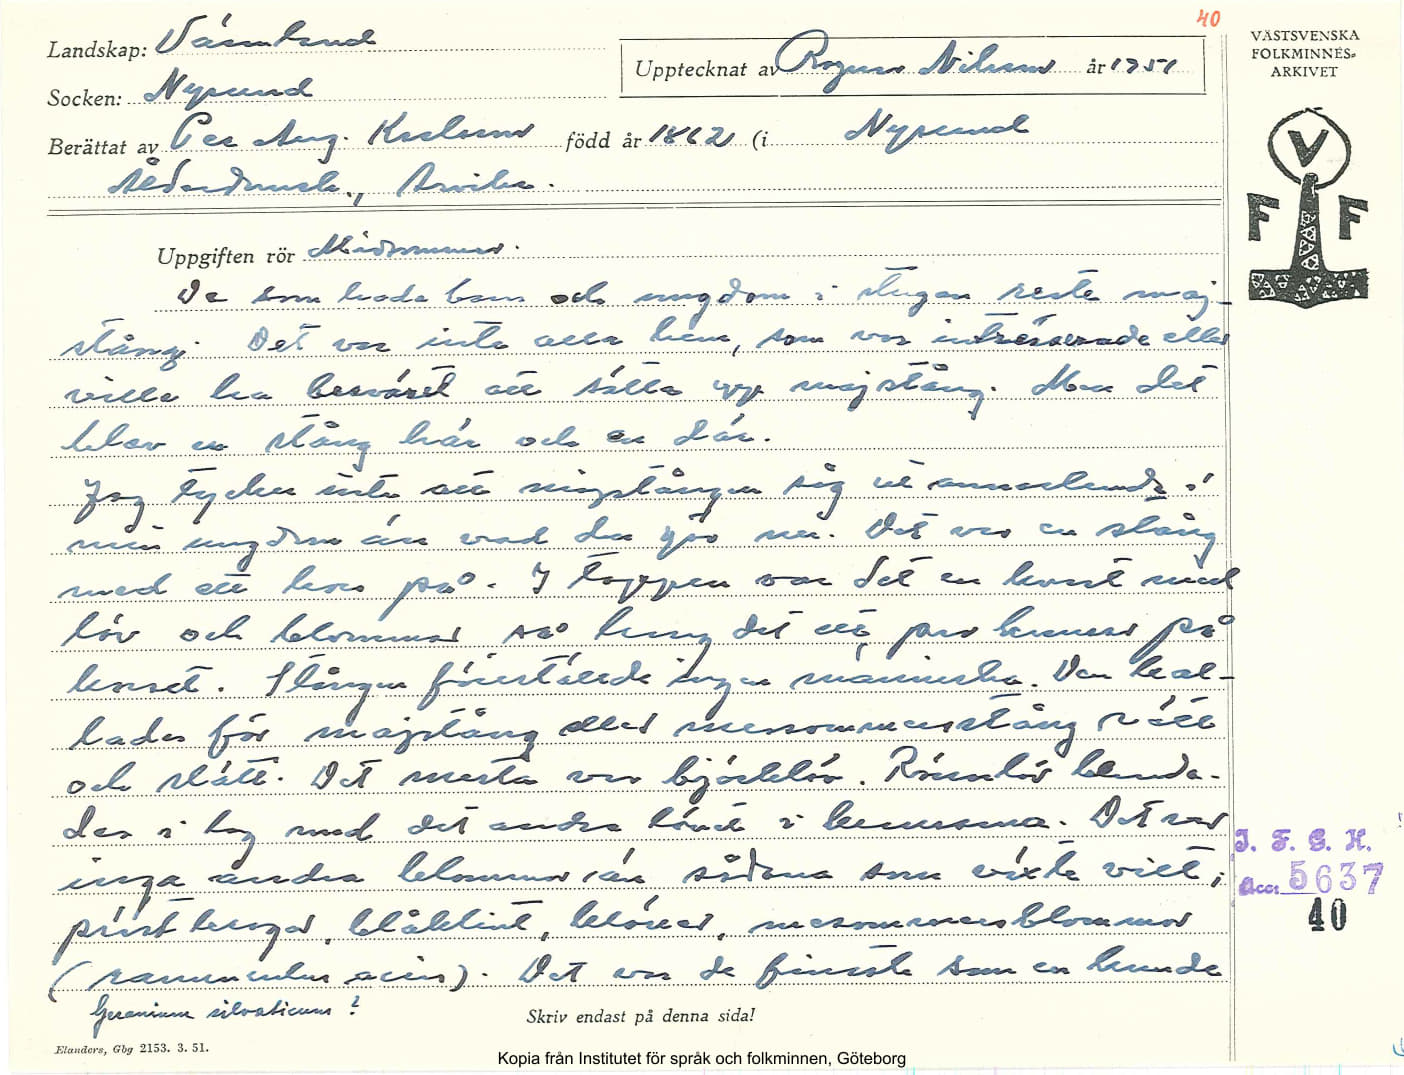 40
Landskap: Värmland
Upptecknat av Ragnar Nilsson år 1951
Socken: Nysund
Berättat av Per Aug. Karlsson född år 1862 (i Nysund
Ålderdomsh., Arvika.
VÄSTSVENSKA
FOLKMINNES-
ARKIVET
V
F F
Uppgiften rör Midsommar.
De som hade barn och ungdom i stugan reste maj-
stång. Det var inte alla hem, som var intresserade eller
ville ha besväret att sätta upp majstång. Men det
blev en stång här och en där.
Jag tycker inte att majstången såg ut annorlunda i
min ungdom än vad den gör nu. Det var en stång
med ett kors på. I toppen var det en krans med
löv och blommor så hang det ett par kransar på
korset. Stången föreställde ingen människa. Den kal-
lades för majstång eller messommersstång rätt
och slätt. Det mesta var björklöv. Rönnlöv blanda-
des i lag med det andra lövet i kransarna. Det var
inga andra blommor än sådana som växte vilt,
prästkragar, blåklint, klöver, mesommersblommor
(ranunculus acris). Det var de finaste som en kunde
Geranium silvaticum?
Skriv endast på denna sida!
Elanders, Gbg 2153. 3. 51.
I. F. G. H.
Acc. 5637
40
Kopia från Institutet för språk och folkminnen, Göteborg